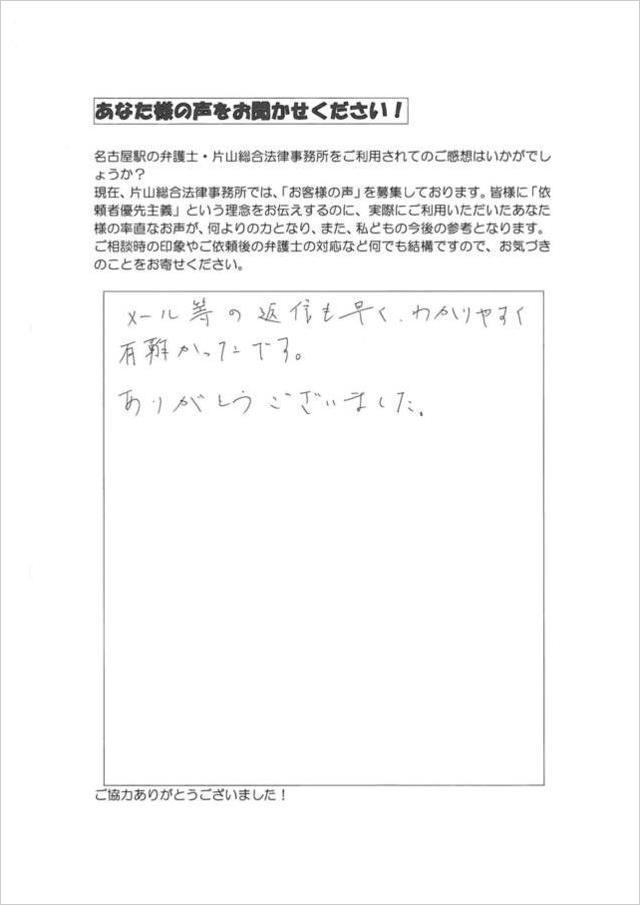 あなた様の声をお聞かせください！
名古屋駅の弁護士・片山総合法律事務所をご利用されてのご感想はいかがでし
ょうか？
現在、片山総合法律事務所では、「お客様の声」を募集しております。皆様に「依
頼者優先主義」という理念をお伝えするのに、実際にご利用いただいたあなた
様の率直なお声が、何よりの力となり、また、私どもの今後の参考となります。
ご相談時の印象やご依頼後の弁護士の対応など何でも結構ですので、お気づき
のことをお寄せください。
メール等の返信も早く、わかりやすく
有難かったです。
ありがとうございました。
ご協力ありがとうございました！